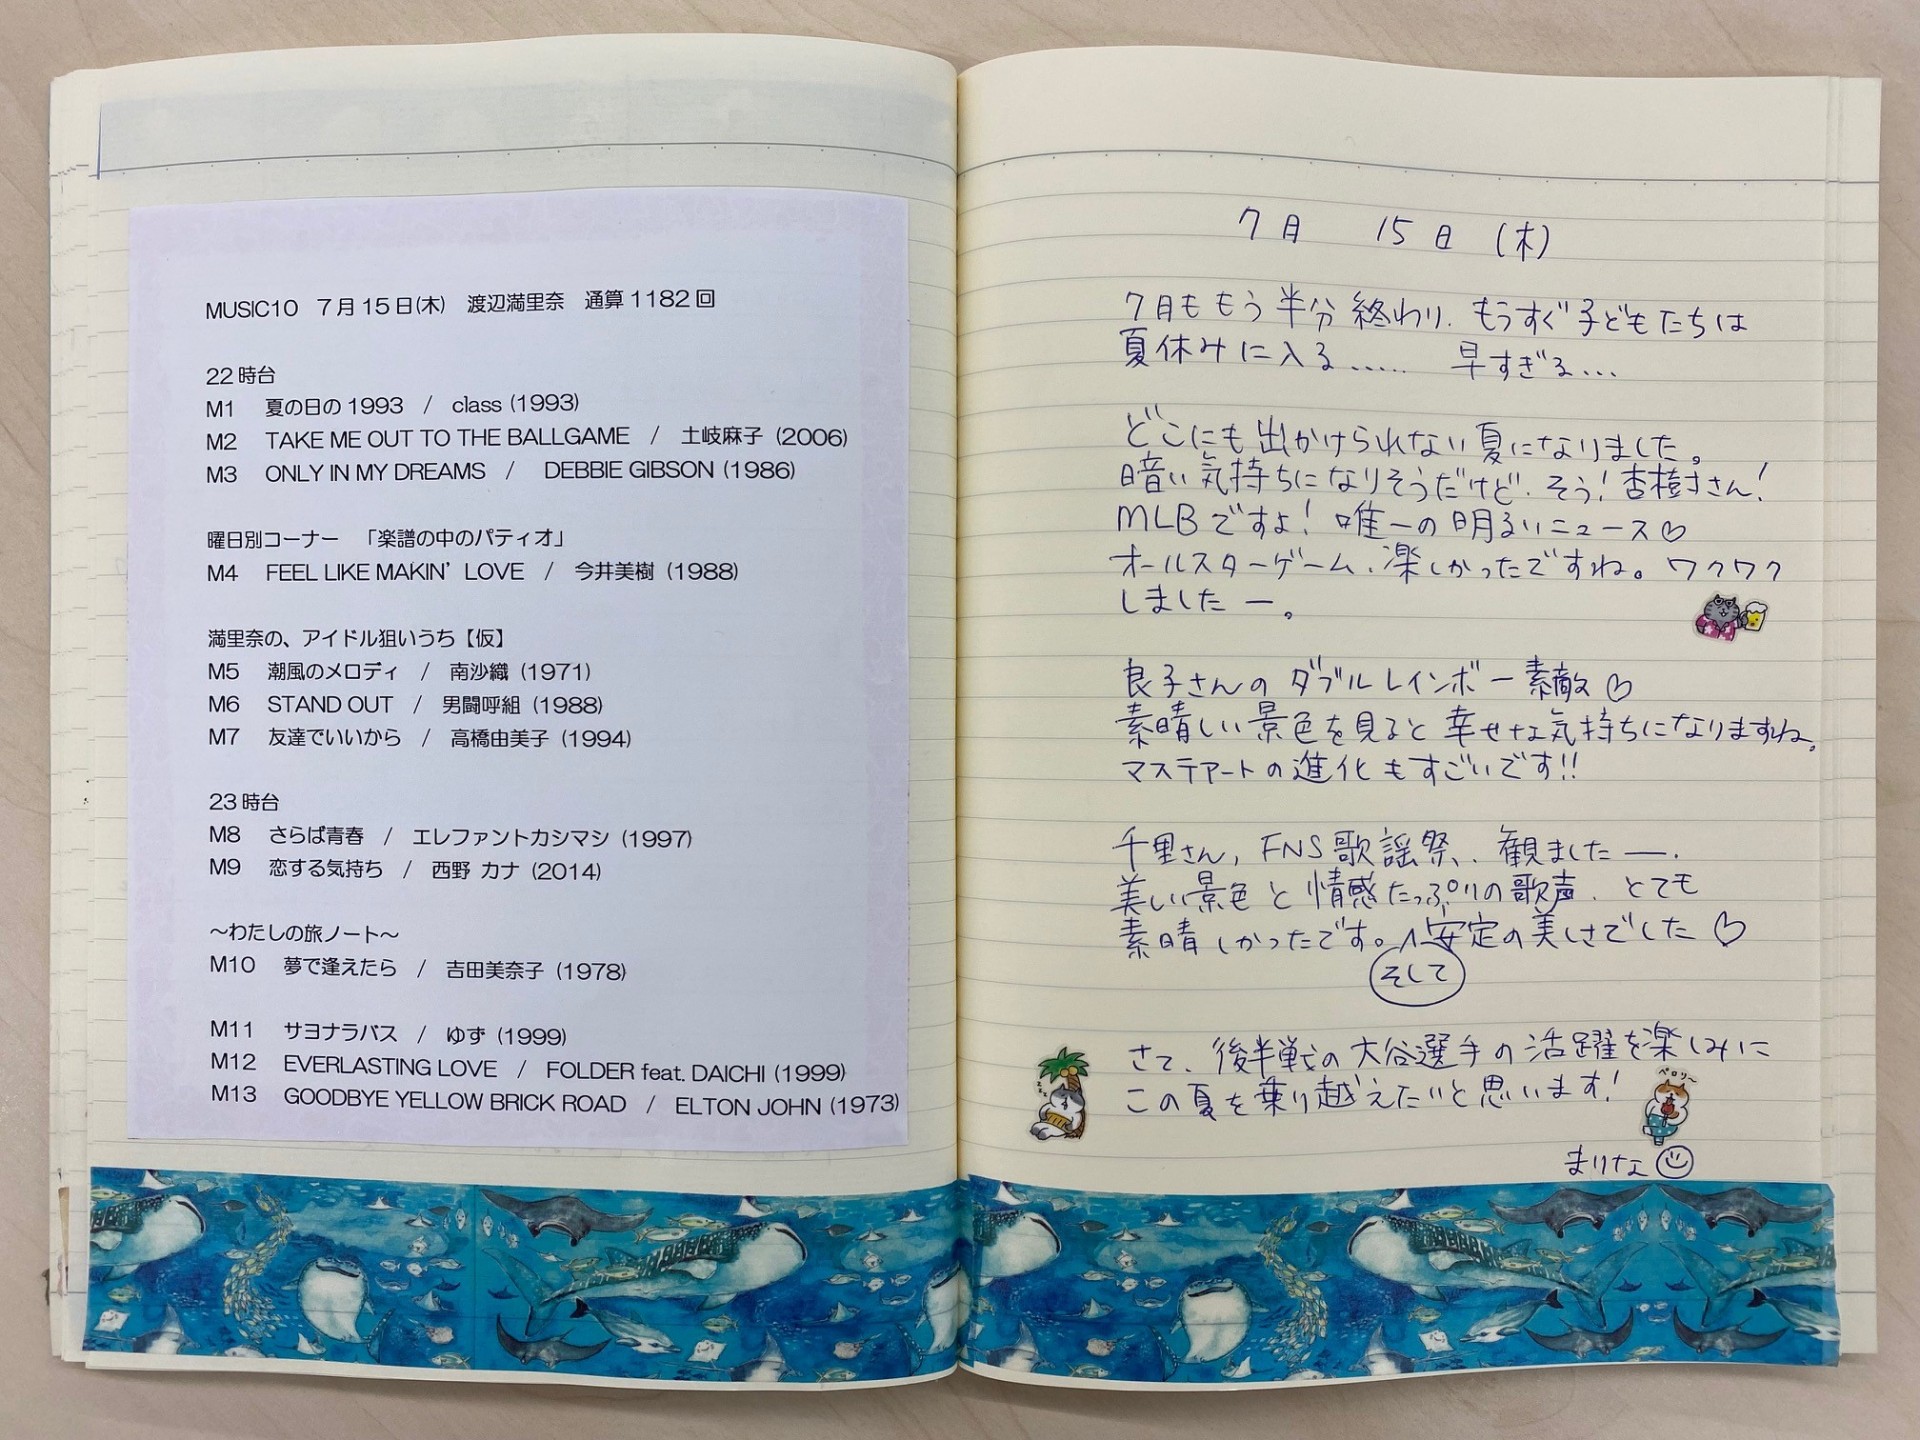 MUSIC10　7月15日(木)　渡辺満里奈　通算1182回
22時台
M1　夏の日の1993　/　class (1993)
M2　TAKE ME OUT TO THE BALLGAME　/　土岐麻子 (2006)
M3　ONLY IN MY DREAMS　/　DEBBIE GIBSON (1986)
曜日別コーナー　「楽譜の中のパティオ」
M4　FEEL LIKE MAKIN' LOVE　/　今井美樹 (1988)
満里奈の、アイドル狙いうち【仮】
M5　潮風のメロディ　/　南沙織 (1971)
M6　STAND OUT　/　男闘呼組 (1988)
M7　友達でいいから　/　高橋由美子 (1994)
23時台
M8　さらば青春　/　エレファントカシマシ (1997)
M9　恋する気持ち　/　西野 カナ (2014)
～わたしの旅ノート～
M10　夢で逢えたら　/　吉田美奈子 (1978)
M11　サヨナラバス　/　ゆず (1999)
M12　EVERLASTING LOVE　/　FOLDER feat. DAICHI (1999)
M13　GOODBYE YELLOW BRICK ROAD　/　ELTON JOHN (1973)
7月　15日 (木)
7月ももう半分終わり. もうすぐ子どもたちは
夏休みに入る..... 早すぎる...
どこにも出かけられない夏になりました。
暗い気持ちになりそうだけど、そう! 杏樹さん!
MLBですよ! 唯一の明るいニュース♡
オールスターゲーム、楽しかったですね。ワクワク
しましたー。
良子さんのダブルレインボー素敵♡
素晴しい景色を見ると幸せな気持ちになりますね。
マステアートの進化もすごいです!!
千里さん, FNS歌謡祭、. 観ましたー.
美しい景色と情感たっぷりの歌声. とても
素晴しかったです。安定の美しさでした♡
そして
さて、後半戦の大谷選手の活躍を楽しみに
この夏を乗り越えたいと思います!
ペロリ～
まりな